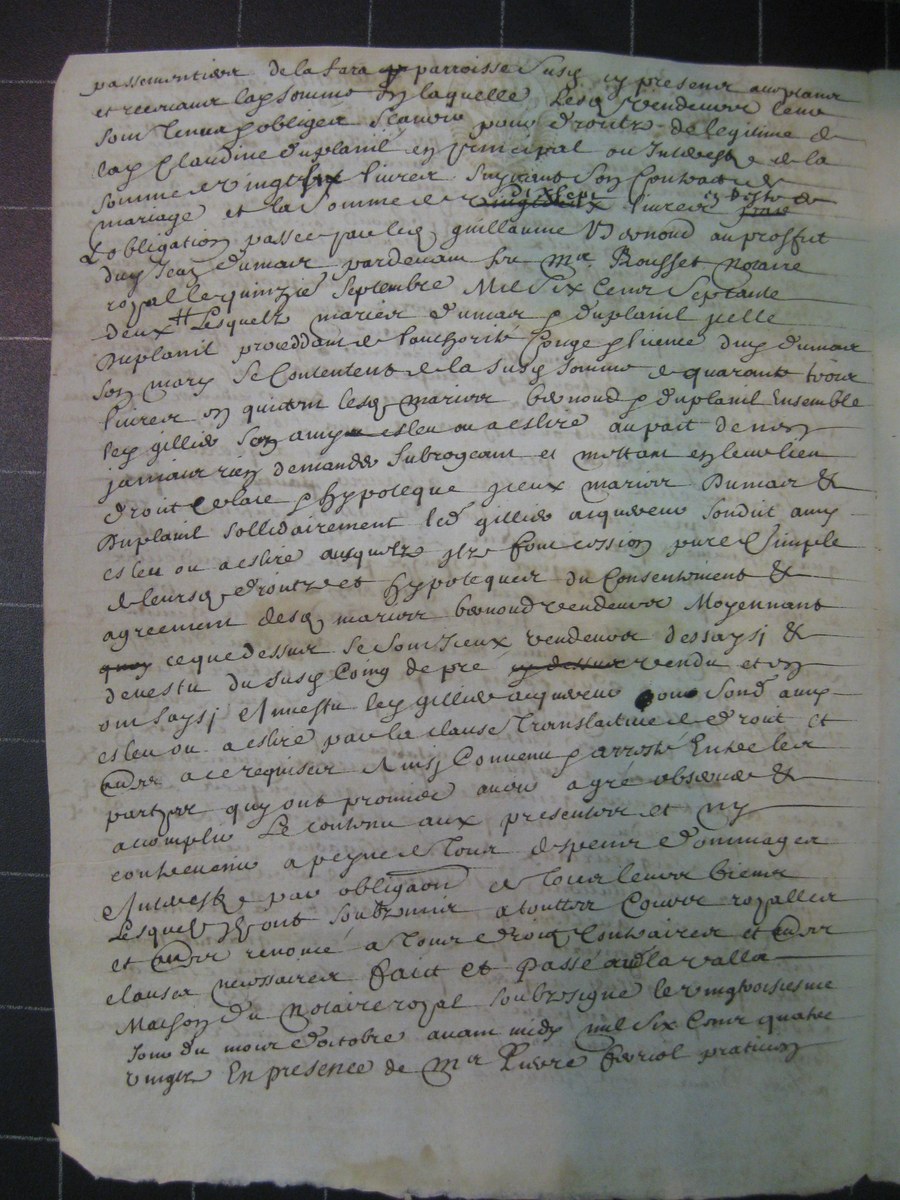 passementier de la fara parroisse susd cy presens acceptant
et recevant lad somme en laquelle lesd vendeurs leur
sont tenus & obliges scavoir pour droitz de legitime de
lad Claudine duplanil en principal ou Interestz de la
somme de vingt six livres suyvant son Contract de
mariage et la somme de dix sept livres reste de
Lobligation passee par led guillaume Bernond au proffit
dud Jean dumas pardevant feu Mr Rousset notaire
royal le quinzie septembre Mil six Cent septante
deux Lesquelz maries dumas & duplanil icelle
Duplanil proceddant de lauthorité Conge & licence dud dumas
son mary se Contentent de la susd somme de quarante trois
livres en quittent lesd maries bernond & duplanil Ensemble
led gillier son amy esleu ou a eslire au pait de nen
jamais rien demander subrogeant et mettant en leur lieu
droit place & hypoteque iceux maries Dumas &
Duplanil sollidairement led gillier acquereur sondit amy
esleu ou a eslire ausquelz ilz font cession pure & simple
de leursd droitz et hypoteques du Consentement &
agreement desd maries bernond vendeurs Moyennant
quoy ce que dessus se sont Iceux vendeurs dessaysi &
devestu du susd Coing de pre cy dessus vendu et en
ont saysi & Investu led gillier acquereur pour sond amy
esleu ou a eslire par la clause Translative de droit et
autres a ce requises Ainsi Convenu & arresté Entre les
parties quy ont promis avoir agré observer &
acomplir Le contenu aux presentes et ny
contrevenir a peyne de Tous despens dommages
& Interestz par obligaon de Tous leurs biens
Lesquelz ont soubzmis a touttes Cours royalles
et autres renoncé a Tous droitz Contraires et autres
clauses necessaires fait et Passé a la valla
Maison du notaire royal soubzsigne le vingtroisiesme
Jour du mois d'octobre avant midy mil six Cent quatre
vingtz En presence de Mr Pierre ferriol praticien